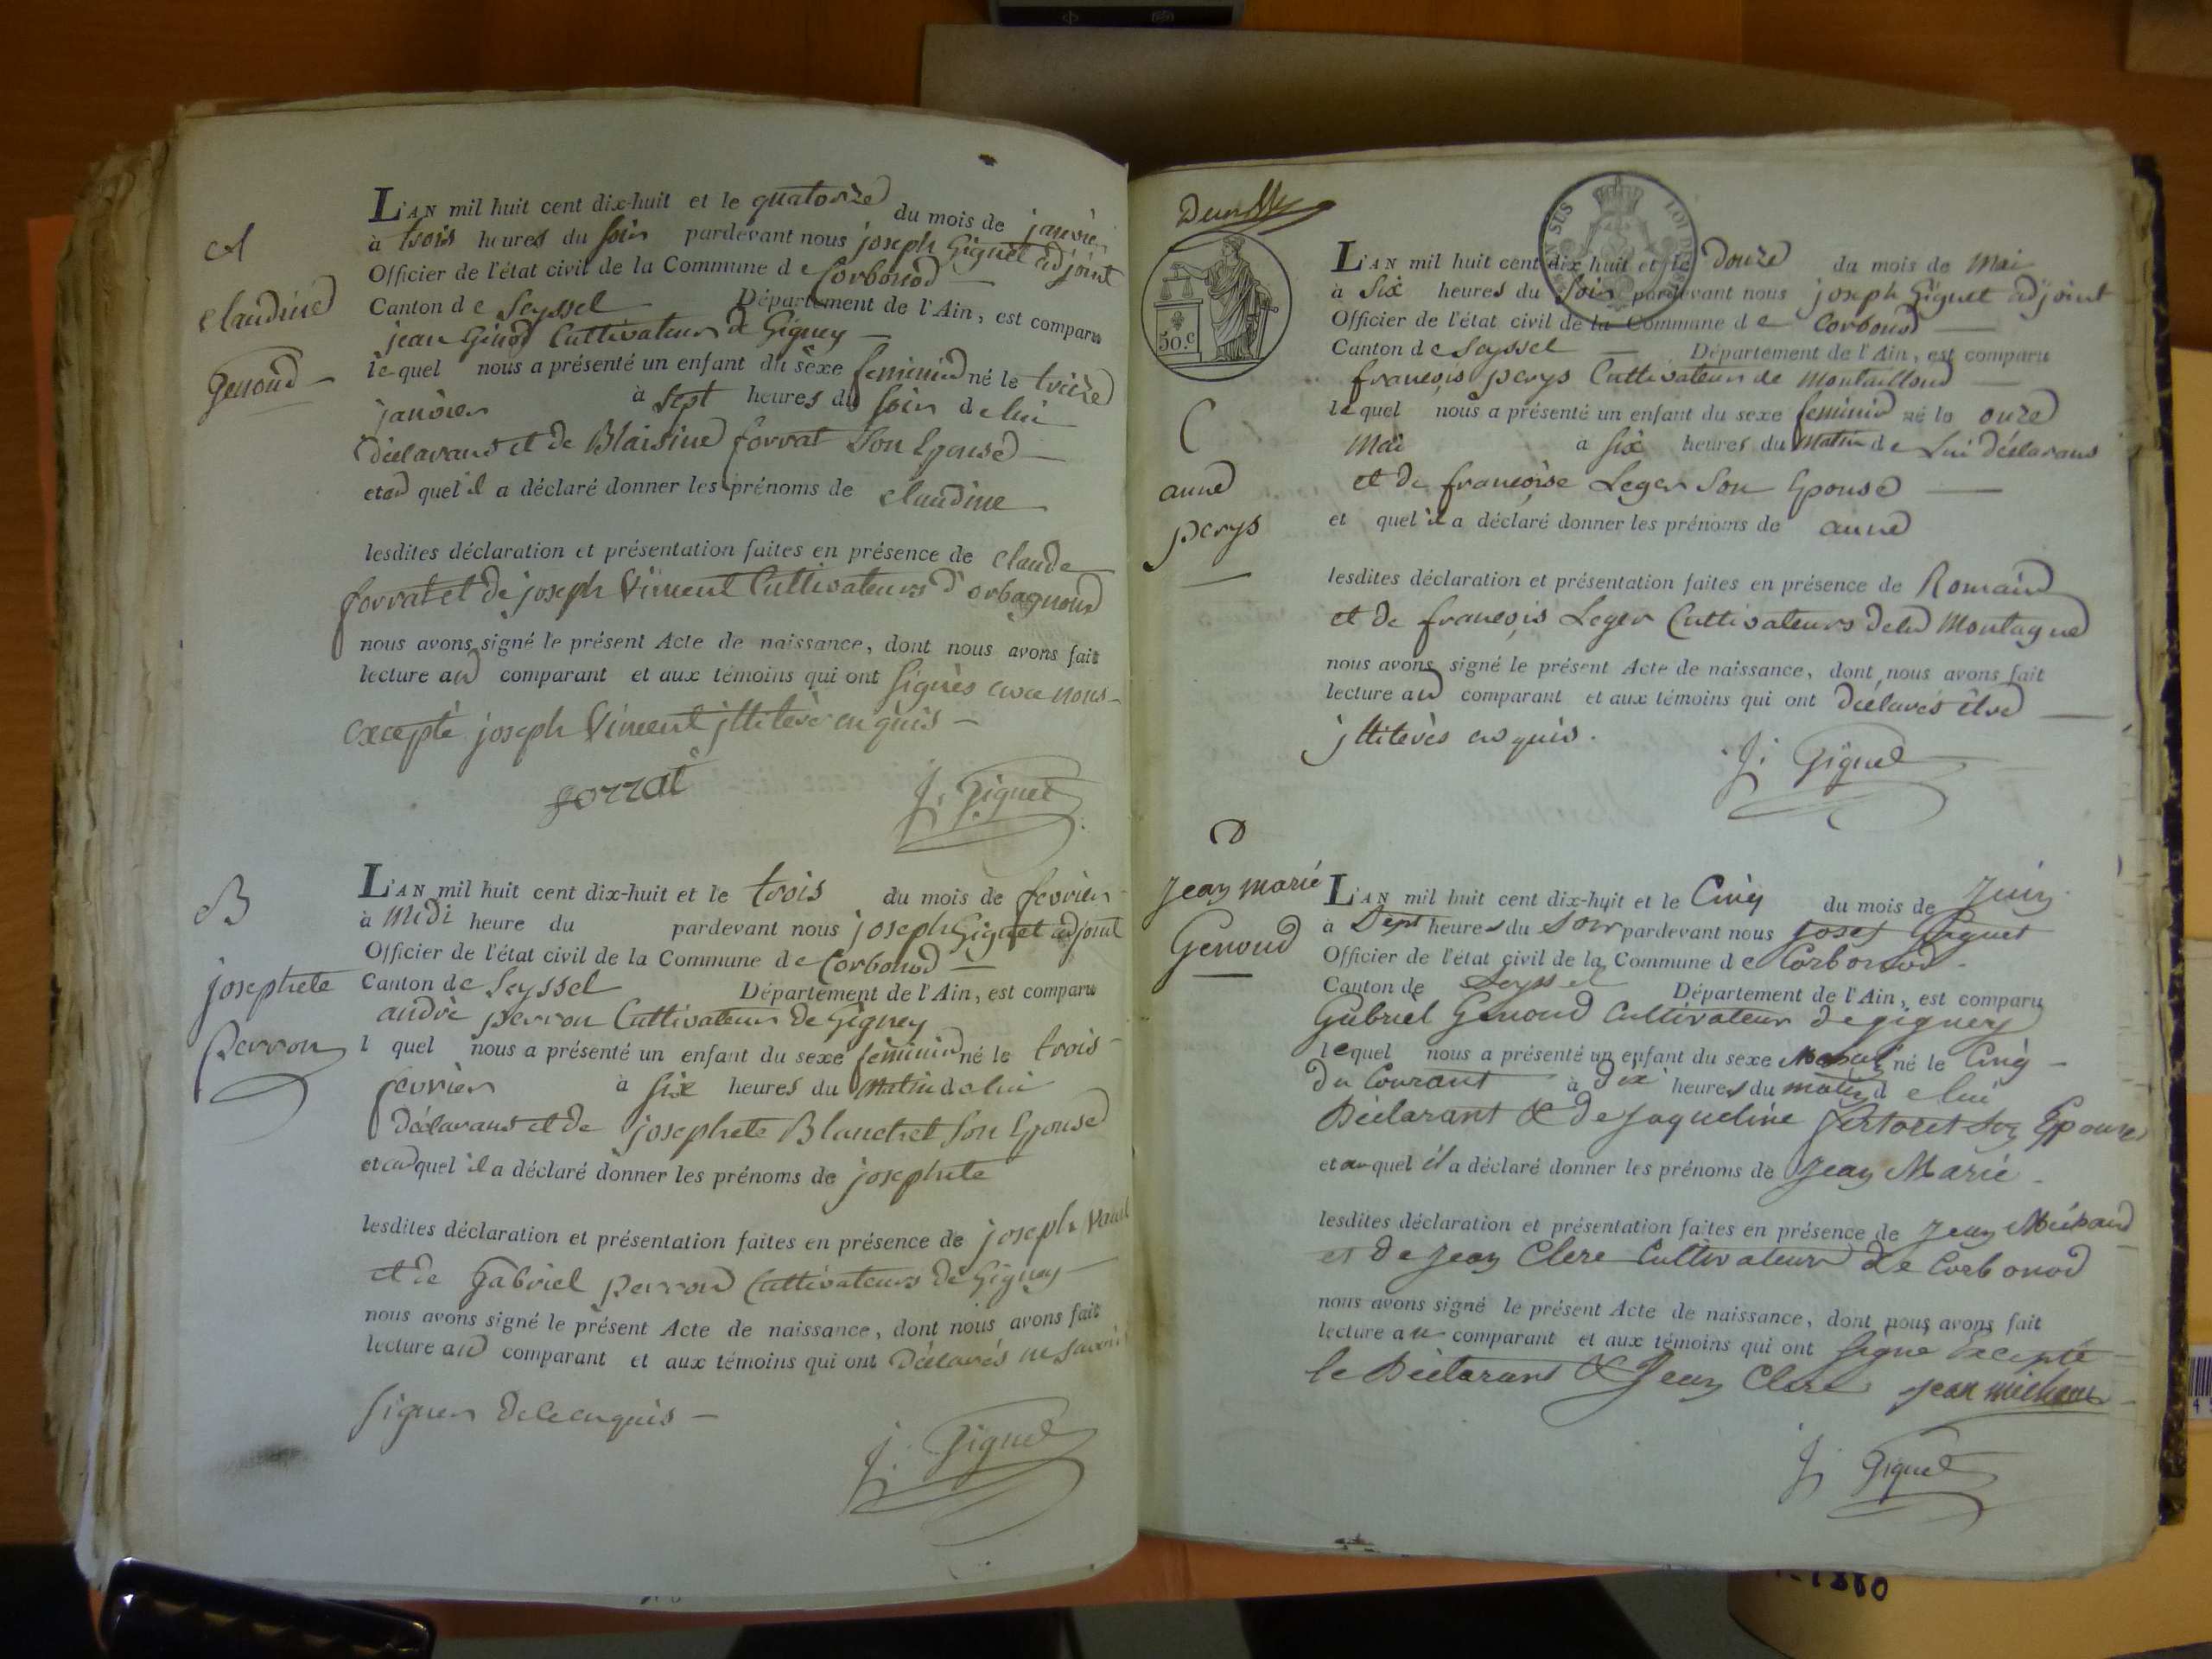 A
claudine
Genoud
L'AN mil huit cent dix-huit et le quatorze du mois de janvier
à trois heures du soir pardevant nous joseph Giguet adjoint
Officier de l'état civil de la Commune de Corbonod
Canton de Seyssel Département de l'Ain, est comparu
jean Genod Cultivateur de Gigney
lequel nous a présenté un enfant du sexe feminin né le treize
janvier à sept heures du soir de lui
déclarant et de Blaisine forrat son Epouse
et au quel il a déclaré donner les prénoms de claudine
lesdites déclaration et présentation faites en présence de claude
forrat et de joseph Vincent Cultivateurs d'orbagnoud
nous avons signé le présent Acte de naissance, dont nous avons fait
lecture au comparant et aux témoins qui ont signés avec nous
excepté joseph Vincent illiteré enquis
forrat
J. Giguet
B
josephete
perron
L'AN mil huit cent dix-huit et le trois du mois de fevrier
à midi heure du pardevant nous joseph Giguet adjoint
Officier de l'état civil de la Commune de Corbonod
Canton de Seyssel Département de l'Ain, est comparu
andré perron Cultivateur de Gigney
l quel nous a présenté un enfant du sexe feminin né le trois
fevrier à six heures du matin de lui
déclarant et de josephete Blanchet son Epouse
et au quel il a déclaré donner les prénoms de josephete
lesdites déclaration et présentation faites en présence de joseph
et de Gabriel perron Cultivateurs de Gigney
nous avons signé le présent Acte de naissance, dont nous avons fait
lecture au comparant et aux témoins qui ont déclarés ne savoir
signer de ce enquis
J. Giguet
50.C
C
anne
perys
L'AN mil huit cent dix-huit et le douze du mois de mai
à six heures du soir pardevant nous joseph Giguet adjoint
Officier de l'état civil de la Commune de Corbonod
Canton de Seyssel Département de l'Ain, est comparu
françois perys Cultivateur de montailloud
lequel nous a présenté un enfant du sexe feminin né le onze
mai à six heures du matin de lui déclarant
et de françoise Leger son Epouse
et quel il a déclaré donner les prénoms de anne
lesdites déclaration et présentation faites en présence de Romain
et de françois Leger Cultivateurs de la montagne
nous avons signé le présent Acte de naissance, dont nous avons fait
lecture au comparant et aux témoins qui ont déclarés être
illiterés enquis.
J. Giguet
D
Jean marie
Genoud
L'AN mil huit cent dix-huit et le Cinq du mois de Juin
à Sept heures du Soir pardevant nous Josef Giguet
Officier de l'état civil de la Commune de Corbonod
Canton de Seyssel Département de l'Ain, est comparu
Gabriel Genoud Cultivateur de gigney
lequel nous a présenté un enfant du sexe né le Cinq
du Courant à dix heures du matin de lui
Déclarant & de Jaqueline son Epouse
et au quel il a déclaré donner les prénoms de Jean Marie
lesdites déclaration et présentation faites en présence de Jean Michaud
et de Jean Clerc Cultivateur de Corbonod
nous avons signé le présent Acte de naissance, dont nous avons fait
lecture au comparant et aux témoins qui ont signé Excepté
le Déclarant & Jean Clerc jean michaud
J. Giguet